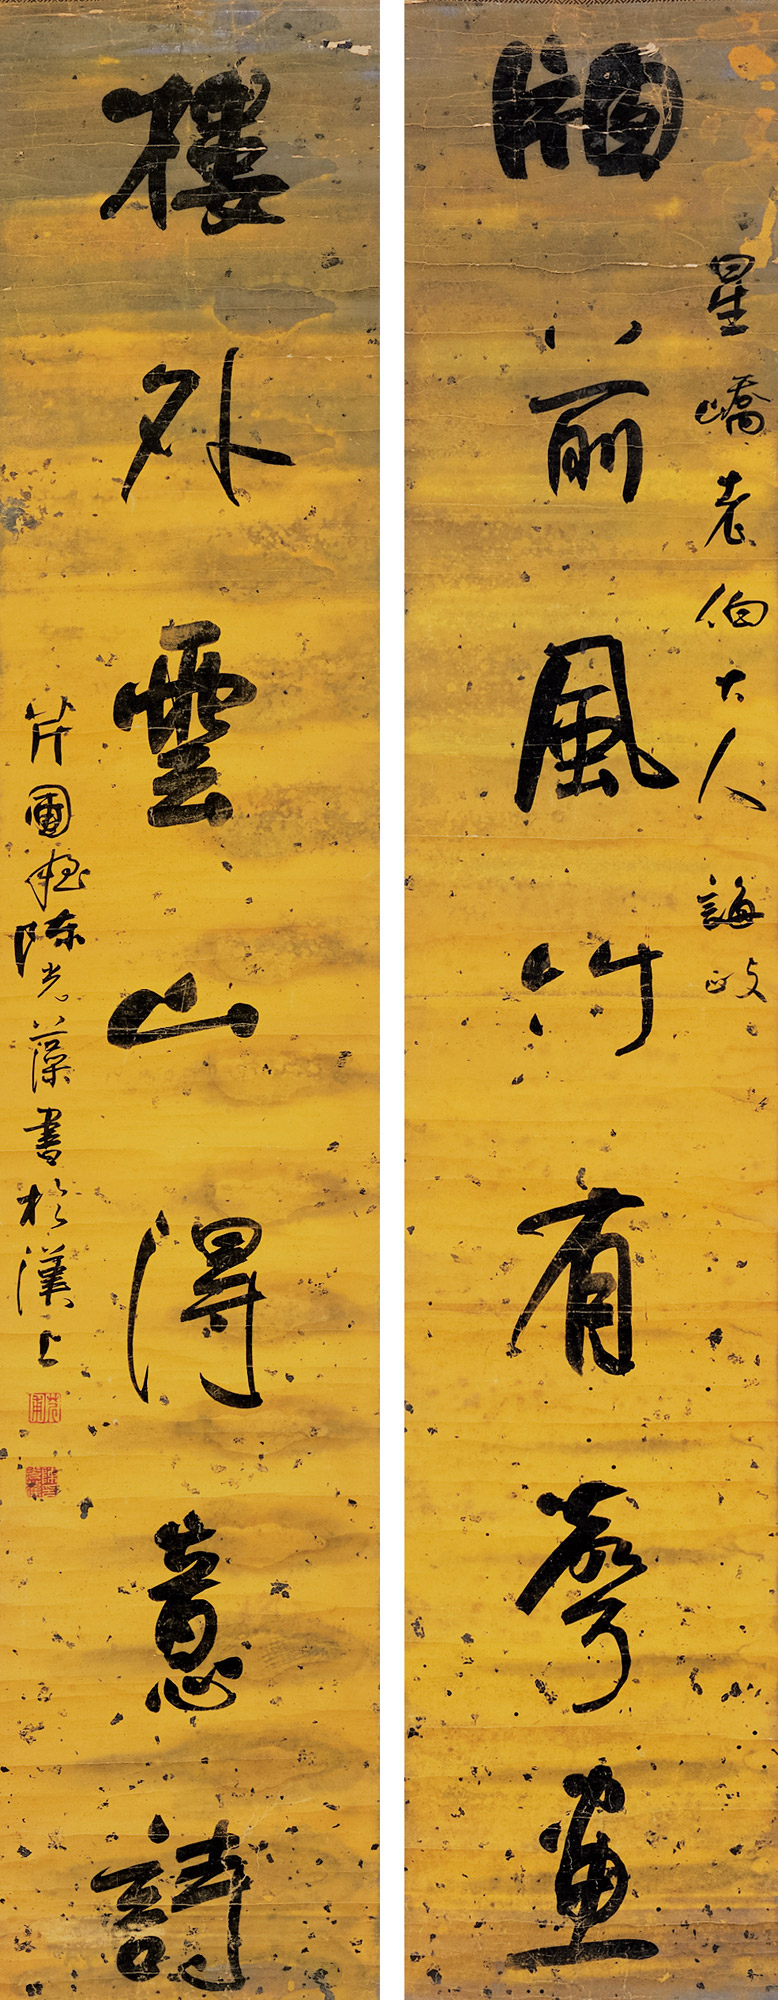 星嶠老伯大人誨政
牕前風竹有聲畫
樓外雲山得意詩
芹圃姪陳光藻書於漢上